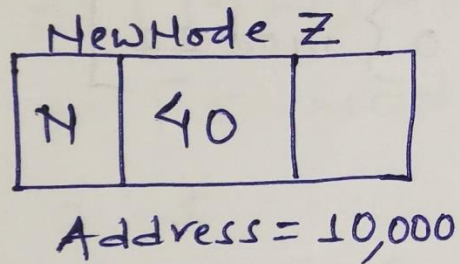 NewNode Z
N 40
Address = 10,000